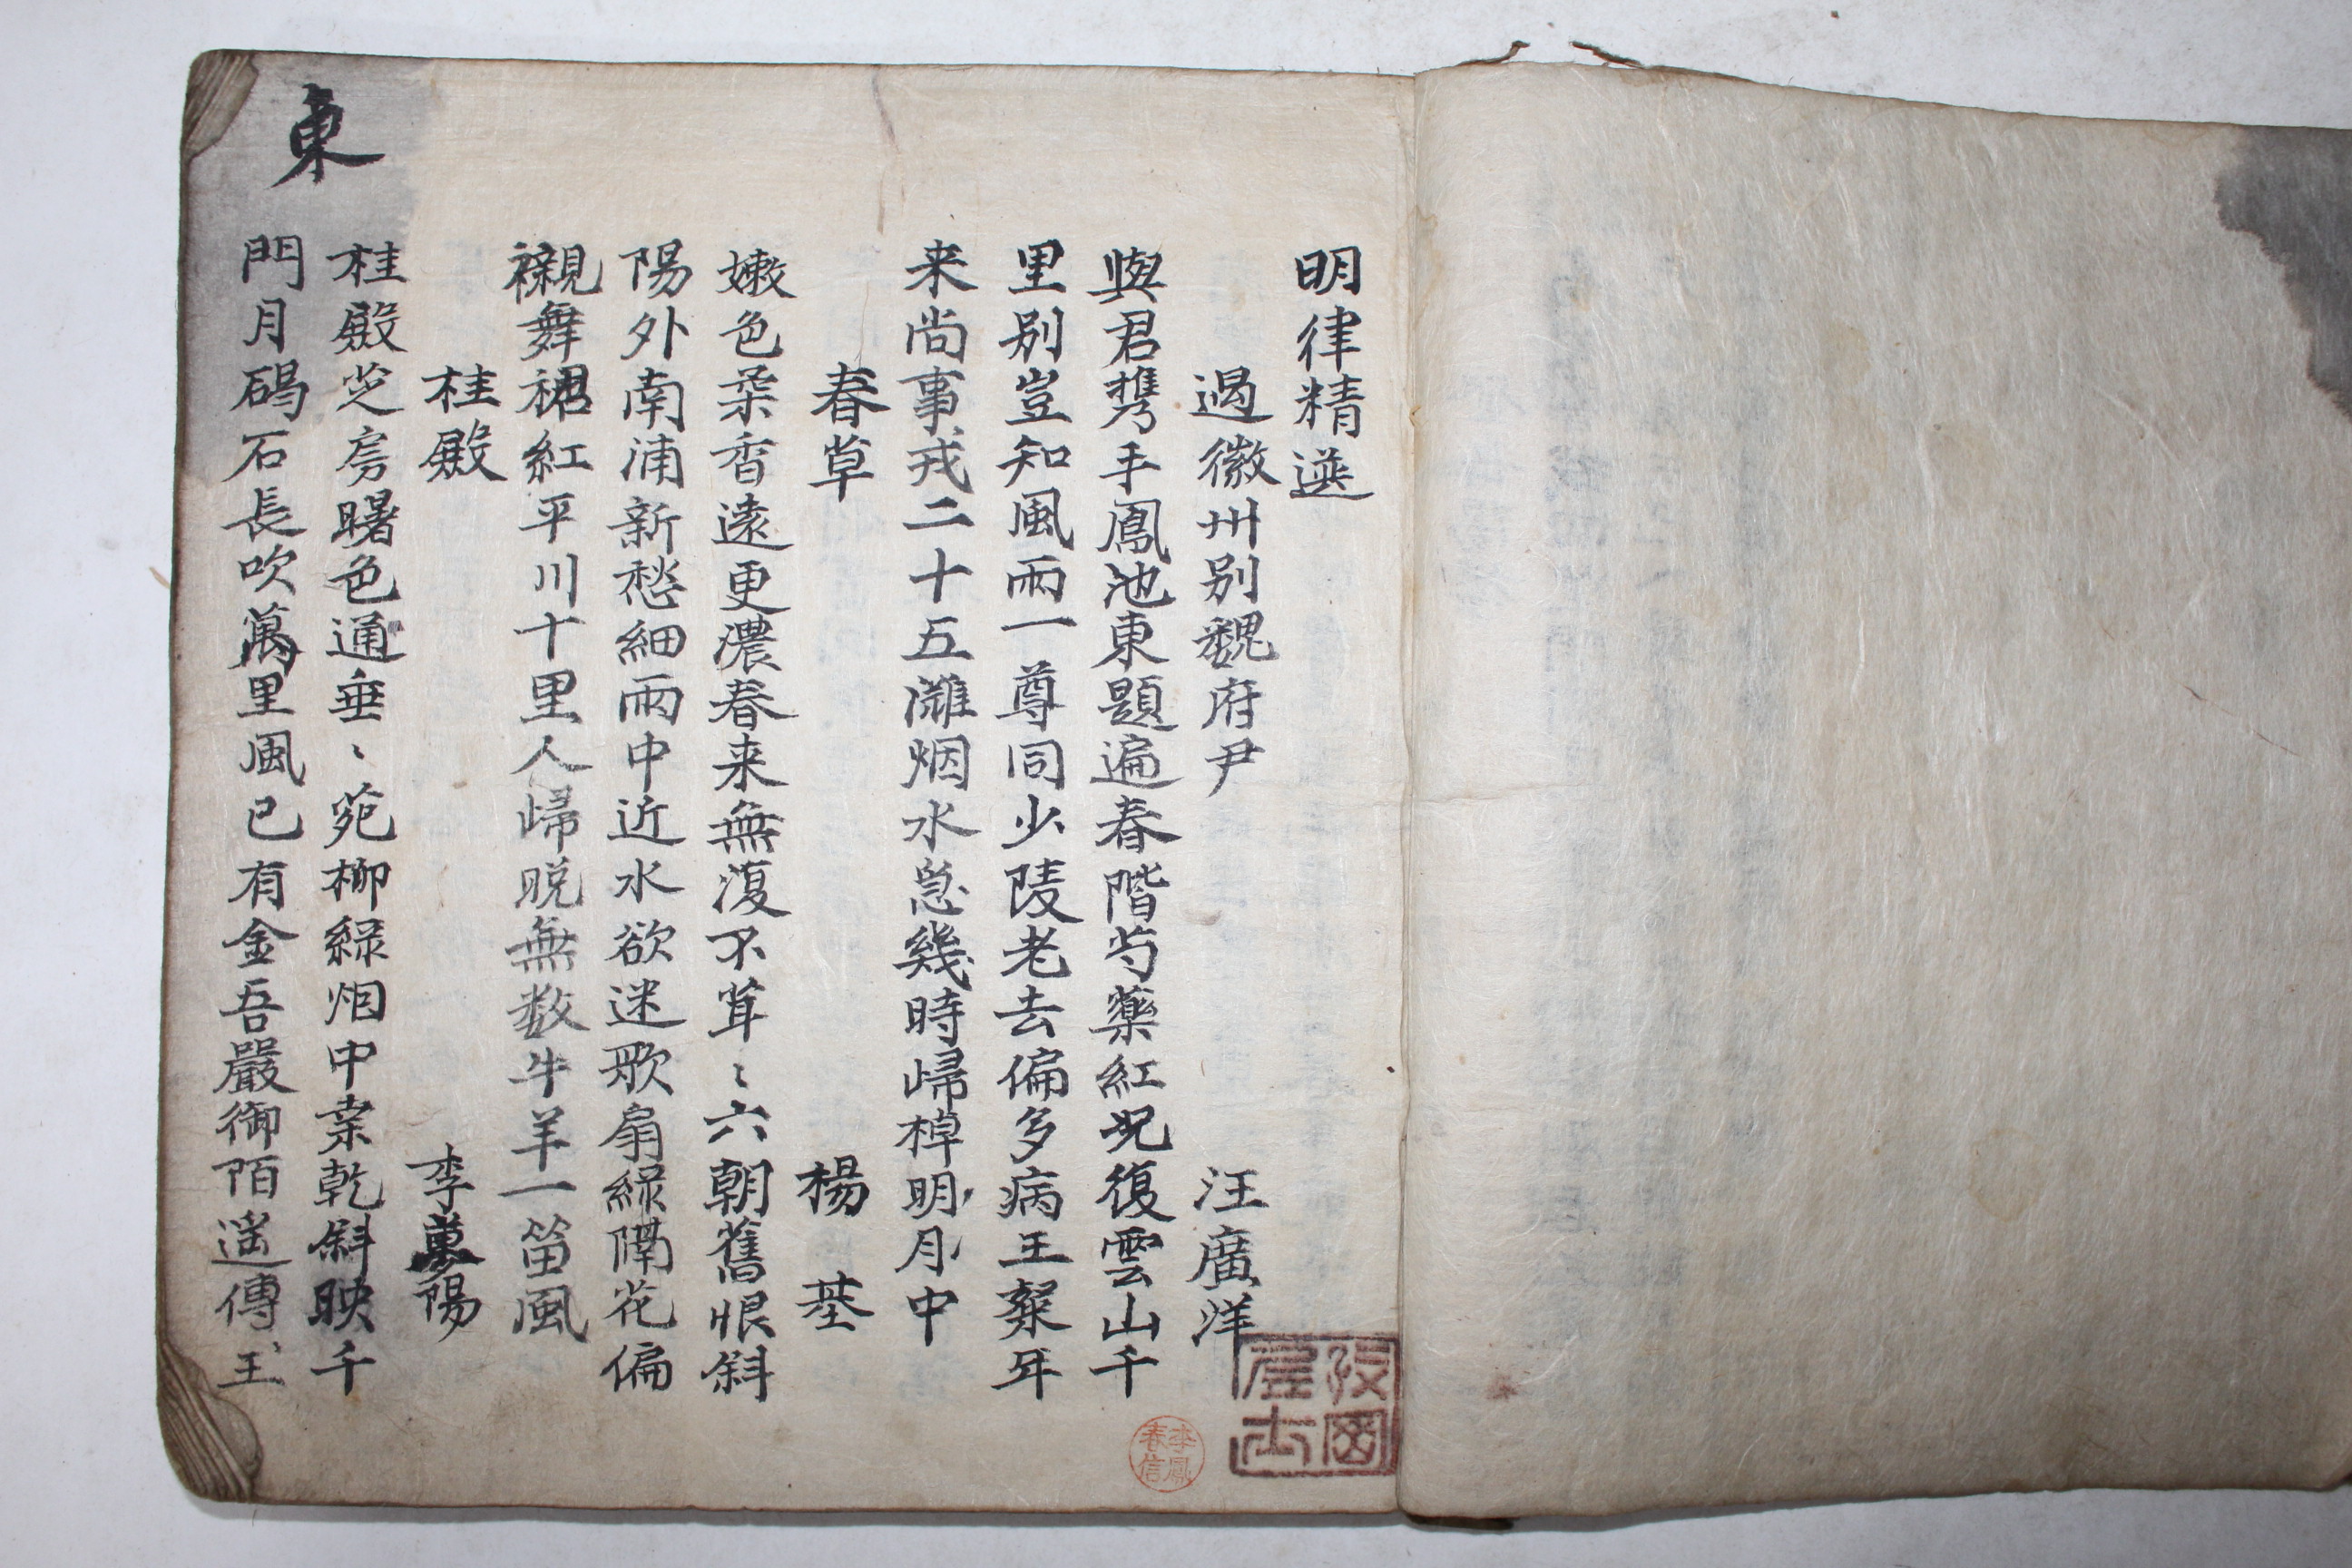 明律精選
過徽州別魏府尹 汪廣洋
與君携手鳳池東題遍春階芍藥紅況復雲山千
里別豈知風雨一尊同少陵老去偏多病王粲年
来尚事戎二十五灘烟水急幾時歸棹明月中
春草 楊基
嫩色柔香遠更濃春来無復不茸〻六朝舊恨斜
陽外南浦新愁細雨中近水欲迷歌扇綠隔花偏
襯舞裙紅平川十里人歸晚無数牛羊一笛風
桂殿 李 陽
桂殿芝房曙色通垂〻苑柳綠烟中乘乾斜映千
門月碣石長吹萬里風已有金吾嚴御陌遥傳玉
東
李鳳春信
居士